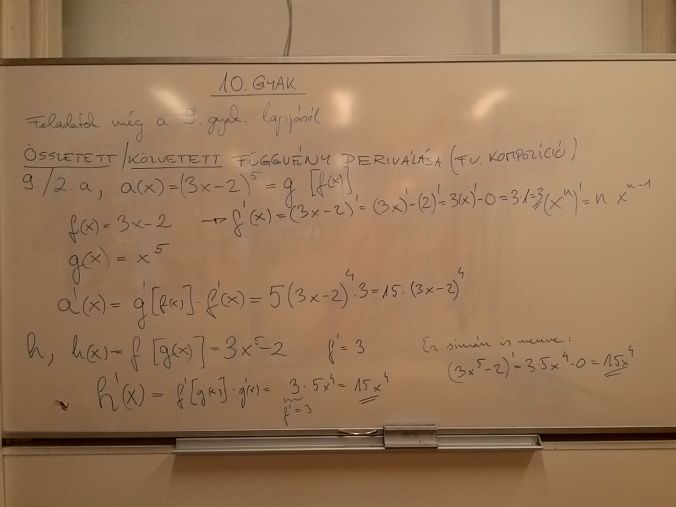 10. GYAK
Feladatok még a 9. gyak. lapjáról
ÖSSZETETT/KÖZVETETT FÜGGVÉNY DERIVÁLÁSA (FV. KOMPOZÍCIÓ)
9./2. a, a(x) = (3x-2)^5 = g [f(x)]
f(x) = 3x-2 → f'(x) = (3x-2)' = (3x)' - (2)' = 3(x)' - 0 = 3·1 = 3 (x^n)' = n · x^{n-1}
g(x) = x^5
a'(x) = g'[f(x)] · f'(x) = 5·(3x-2)^4 · 3 = 15·(3x-2)^4
h, h(x) = f [g(x)] = 3x^5-2 f' = 3 Ez simán is menne:
(3x^5-2)' = 3·5x^4-0 = 15x^4
h'(x) = f'[g(x)] · g'(x) = 3 · 5x^4 = 15x^4
f' = 3